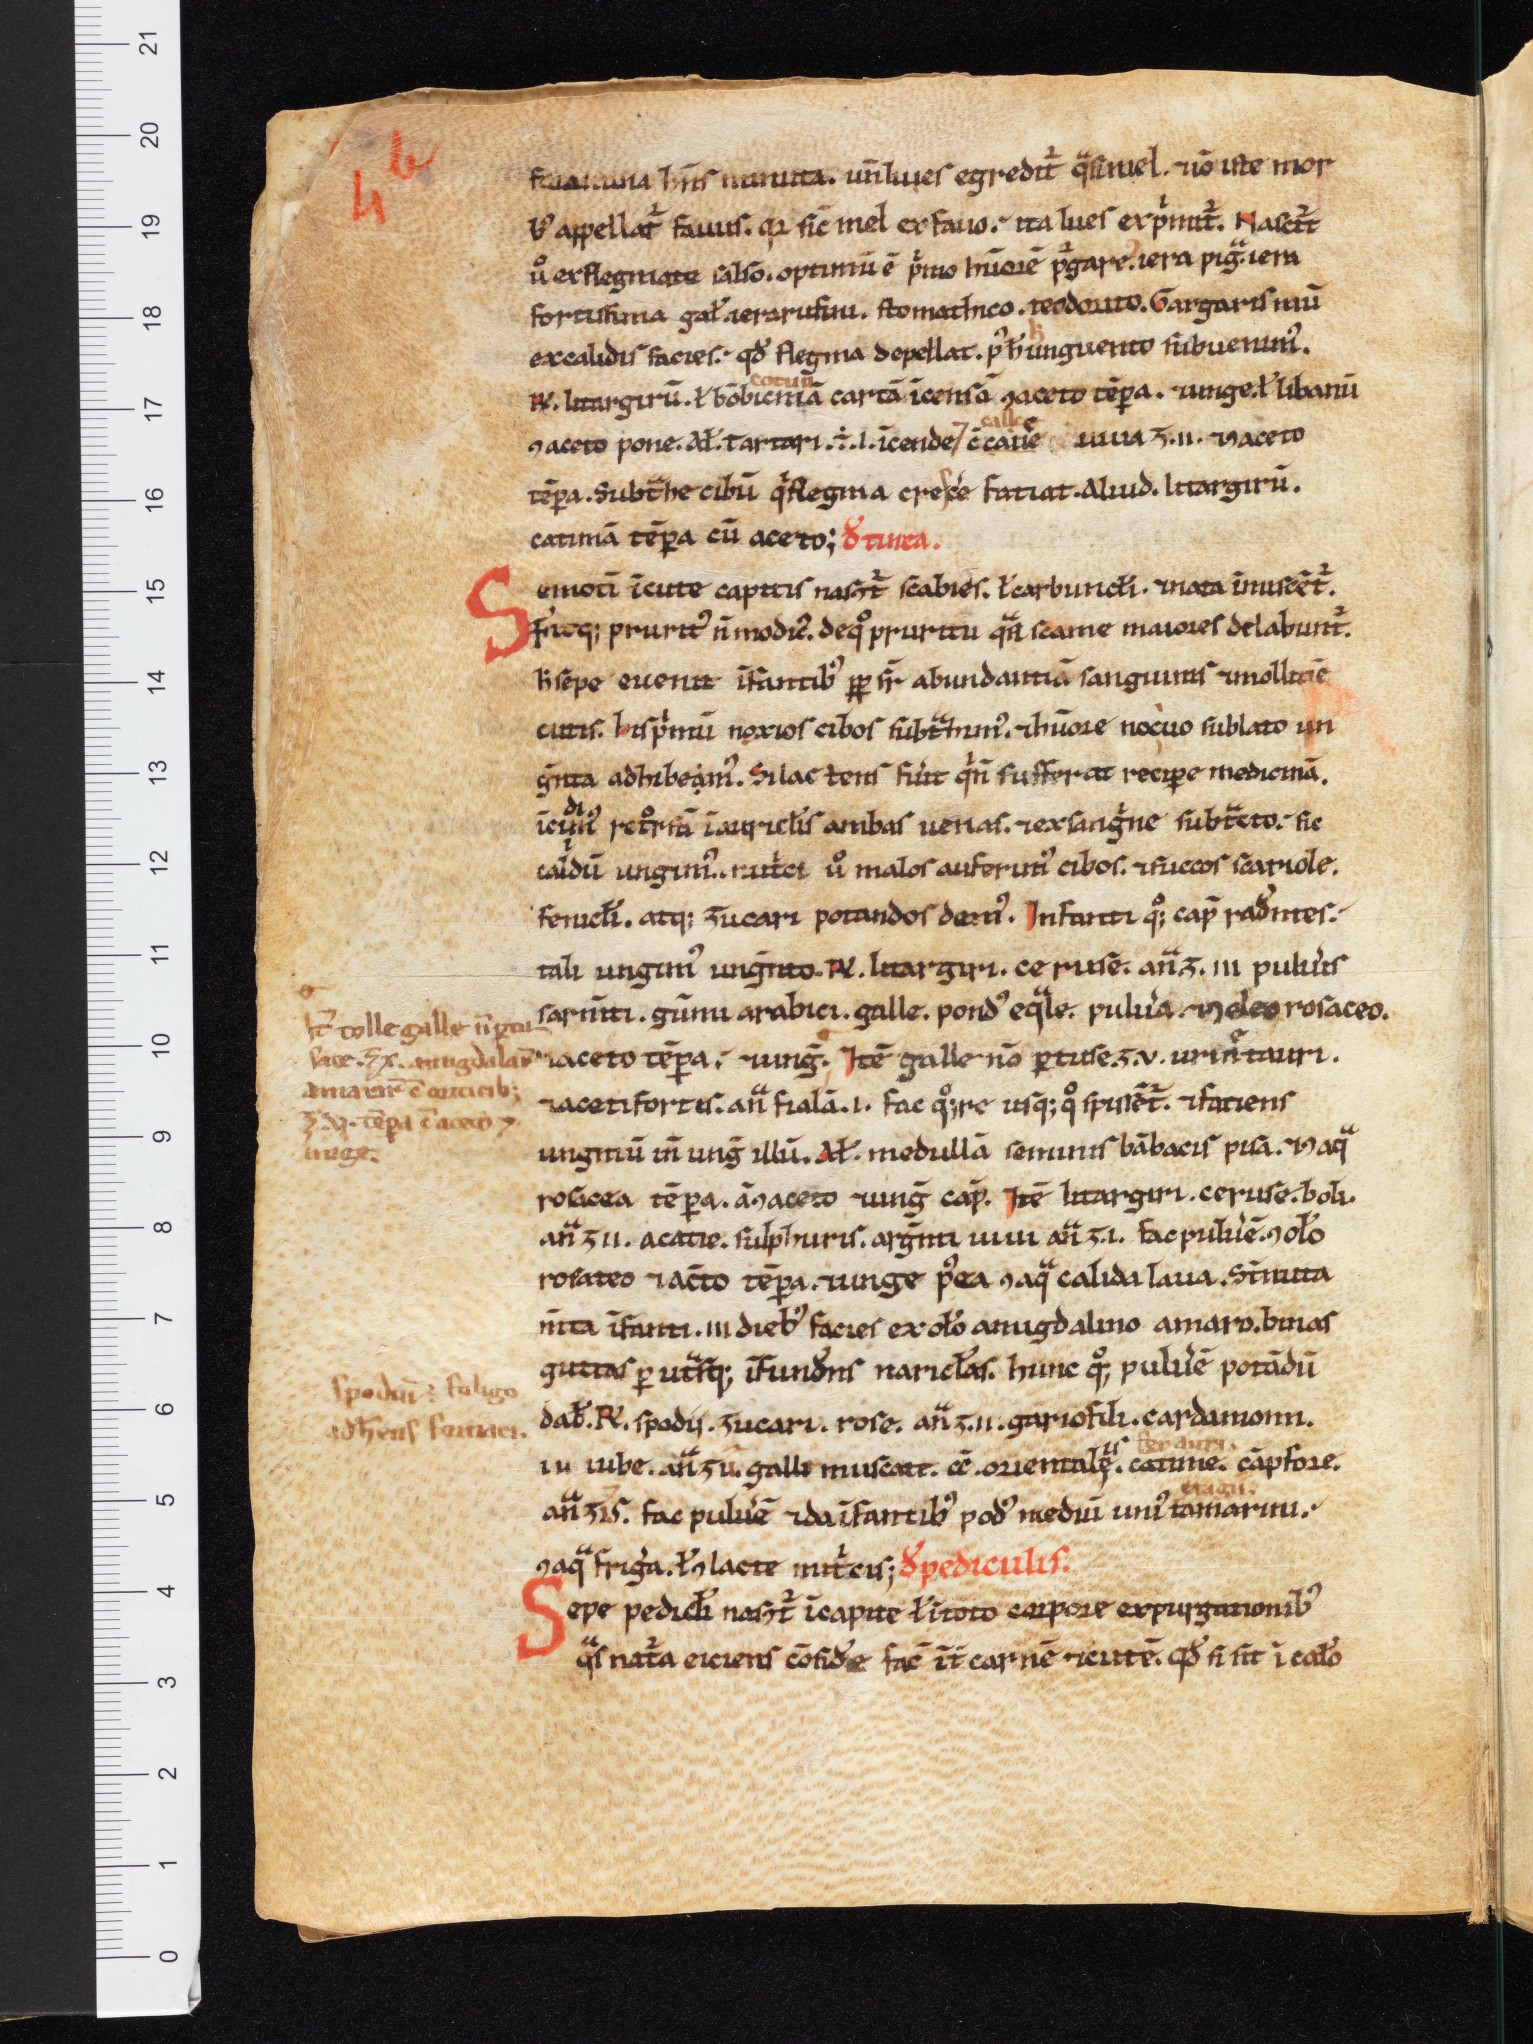 h b
foramina hñs minuta. un̄ lues egredit᷑ qͣsi mel. uñ iste mor
b᷒ appellat᷑ fauus. q2 sic̄ mel ex fauo. ita lues exp̍mit᷑. Nascit᷑
u̾ ex flegmate salso. optimū ē p̍mo hūorē p᷑gare. iera pigͣ. iera
fortissima gal̃. iera rufini. stomathico. teodorito. Gargarismū
ex calidis facies. qd̃ flegma depellat. p᷒ h̃ unguento subuenim᷒.
cotun
R̃. litargirū. ł bōbicinā cartā īcensā ɔ aceto tēꝑa. ⁊ unge. ł libanū
calce
ɔ aceto pone. Al̃. tartari. ÷. i. īcende ⁊ c̄ calie uiua ʒ. ii. ⁊ ɔ aceto
tēꝑa. Subtͣhe cibū q̍ flegma cresc̾e fatiat. Aliud. litargirū.
catimā tēꝑa cū aceto; d̃ tinea.
Semoti ī cute capitis nasc̄t᷑ scabies. ł carbuncł̃i. ⁊ nota īnuscēt᷑.
fitq; prurit᷒ ñ modic᷒. de qͦ pruritu qͣn̄ scame maiores delabunt᷑.
h̃ sepe euenit īfantib᷒ ꝓpt̃ abundantiā sanguinis ⁊ mollitiē
cutis. his p̍mū noxios cibos subtͣhim᷒. ⁊ hūore nocuo sublato un
g̃nta adhibeam᷒. Si lactens fu̾it q̍ ñ sufferat recipe medicinā.
di
īcim᷒ retͦrsū ī auricł̃is ambas uenas. ⁊ ex sang̍ne subtͣcto. sic
calidū ungim᷒. nut̍ci u̾ malos auferim᷒ cibos. ⁊ succos scariole.
fenicł̃i. atq; ʒucari potandos dem᷒. Infanti qͦ; cap̃ rad̾ntes.
tali ungim᷒ ung̃nto. R̃. litargiri. ceruse. anͣ ʒ. iii pulu̾is
sarm̄ti. gūmi arabici. galle. pond᷒ eqͣle. pulu̾a. ⁊ ɔ oleo rosaceo.
⁊ aceto tēꝑa. ⁊ ung̃. Itē galle nō ꝑtuse. ʒ. v. urinͣ tauri.
⁊ aceti fortis. anͣ fialā. i. fac qͦ;re usq; qͦ spissēt᷑. ⁊ fatiens
ung̃tū in̄ ung̃ illū. Al̃. medullā seminis bābacis pisa. ⁊ ɔ aqͣ
rosacea tēꝑa. ā ɔ aceto ⁊ ung̃ cap̃. Itē litargiri. ceruse. boli.
anͣ ʒ ii. acatie. sulphuris. arg̃nti uiui anͣ ʒ. i. fac pulu̾ē. ɔ ol̃o
rosateo ⁊ ac̄to tēꝑa. ⁊ unge p᷒ea ɔ aqͣ calida laua. St̄nuta
m̄ta īfanti. iii dieb᷒ facies ex ol̃o amigdalino amaro. binas
guttas ꝑ utͣsq; īfund̾ns naricł̃as. hunc qͦ; pulu̾ē potādū
dab̃. R̃. spodij. ʒucari. rose. anͣ ʒ. ii. gariofili. cardamomi.
iuiube. anͣ ʒ ii. galli muscat. c̄c̄. orientalis. catime. cāpfore.
anͣ ʒ iS. fac pulu̾ē ⁊ da īfantib᷒ pōd᷒ mediū uni᷒ tamarini.
ɔ aqͣ frig̾a. ł ɔ lacte nut̍cis; d̃ pediculis.
Sepe pedicł̃i nasc̄t᷑ ī capite ł ī toto corpore ex purgationib᷒
qͣs nat̾a eiciens cōsid̾e fac̄ īt̄ carnē ⁊ cutē. Qd̃ si sit ī cal̃o
tolle galle ñ ꝑtu
sace. ʒx. amigdalar̃
amarar̃ c̄ corticib;
ʒ. v. tēꝑa c̄ aceto ⁊
unge.
spodiū : fuligo
adh̾ens fornaci.